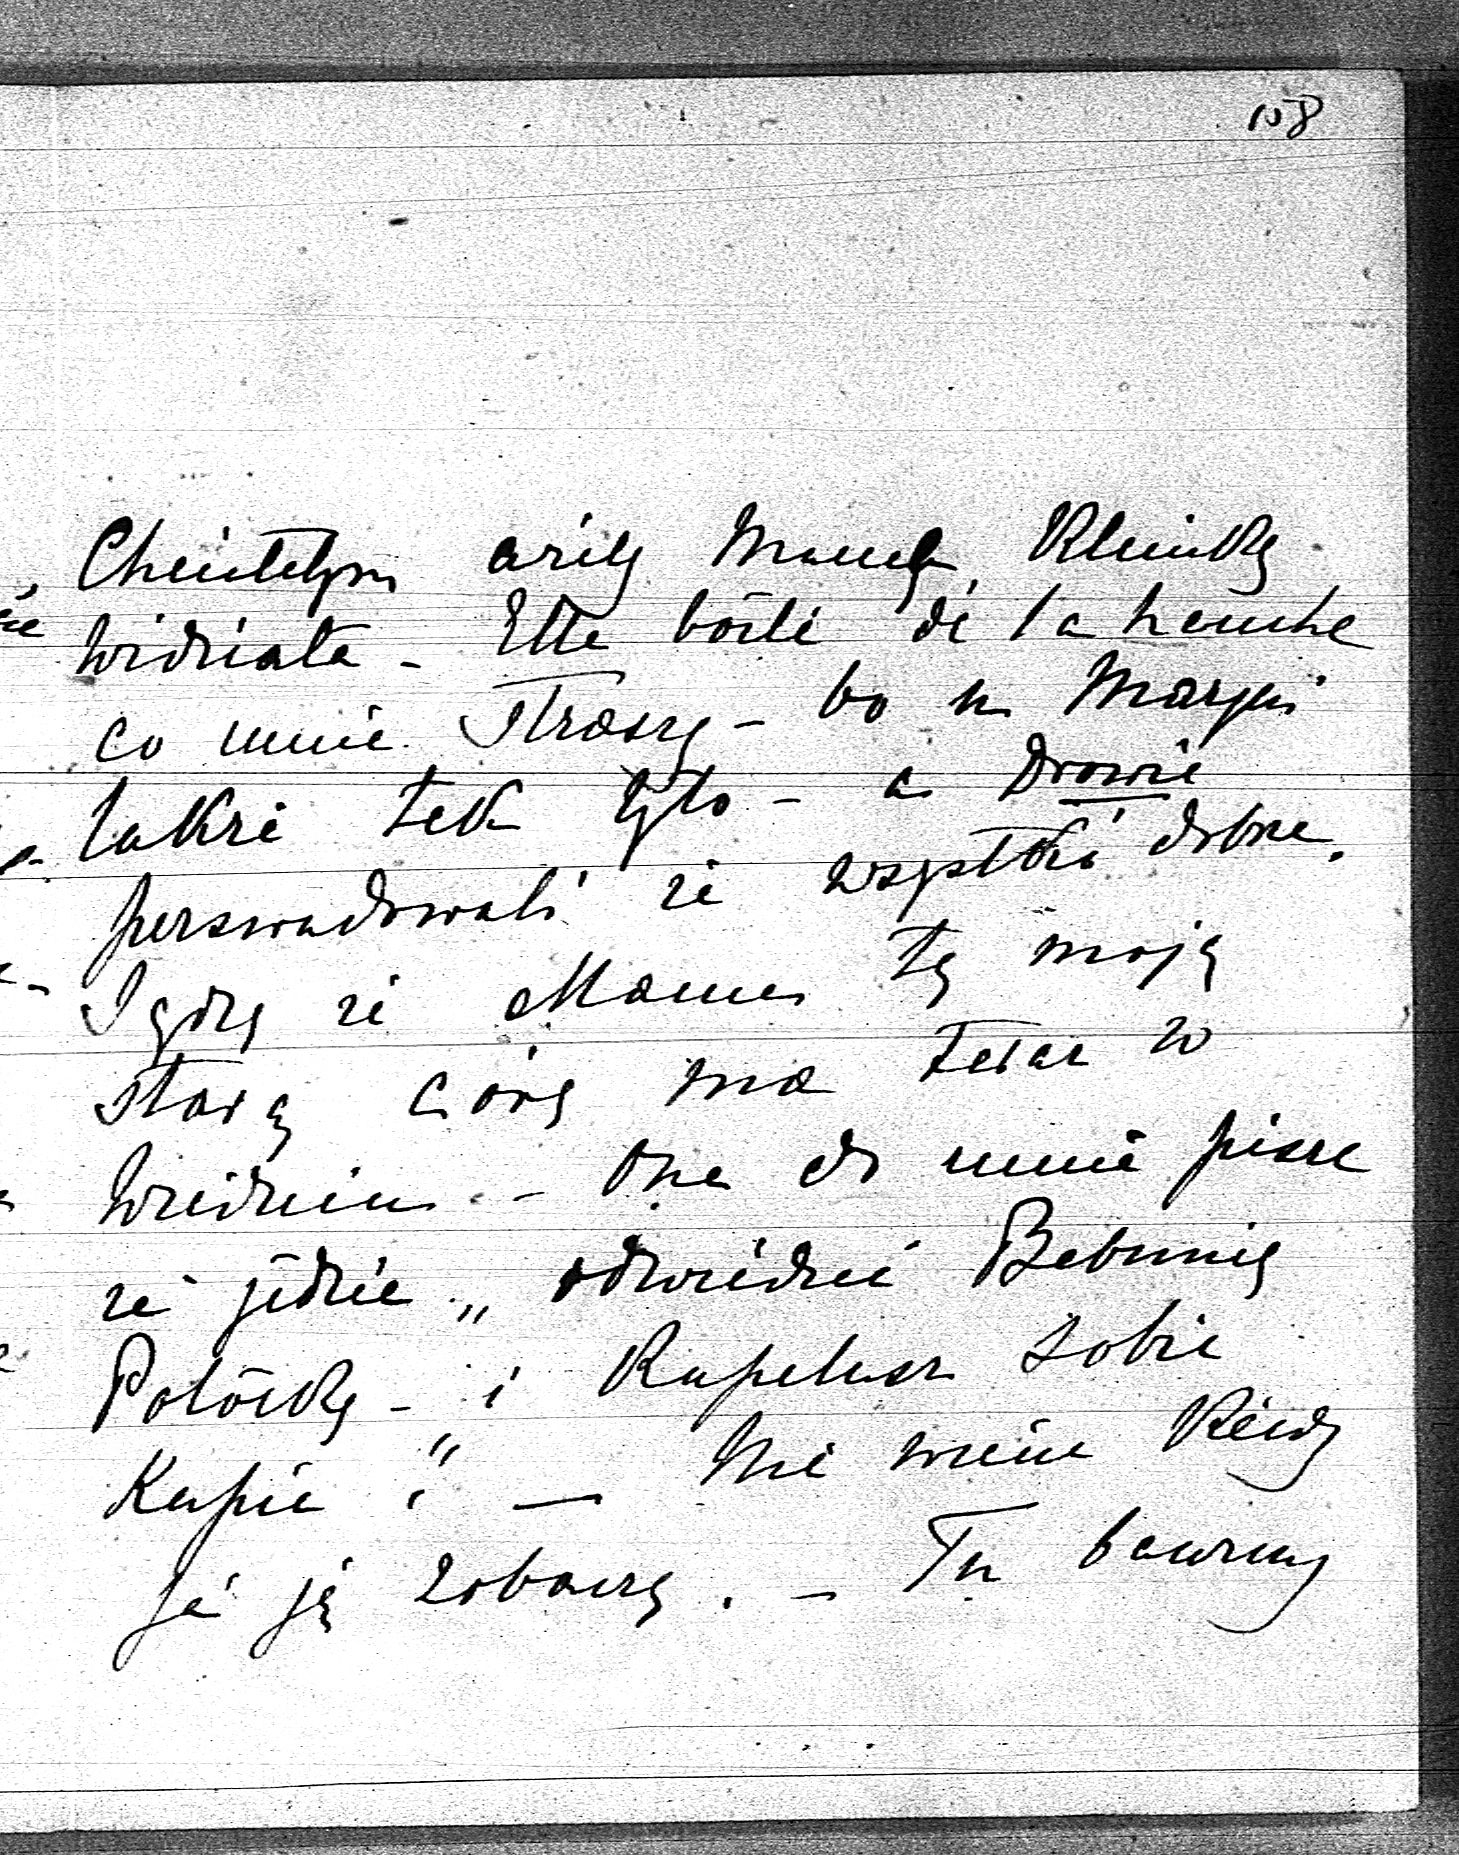 108
Chciałabym ażeby Mamę Klinikę
widziała - Elle boîte de la hanche
co mnie straszy - bo u Maryni
także tak było - a Drowie
perswadowali że wszystko dobrze.
Sądzę że Mama tę moją
starą córę ma teraz w
Wiedniu - Ona do mnie pisze
że jedzie „ odwiedzić Babunię
Potocką - i Kapelusz sobie
Kupić " — Nie wiem kiedy
Ja ją zobaczę . - Tu bawimy